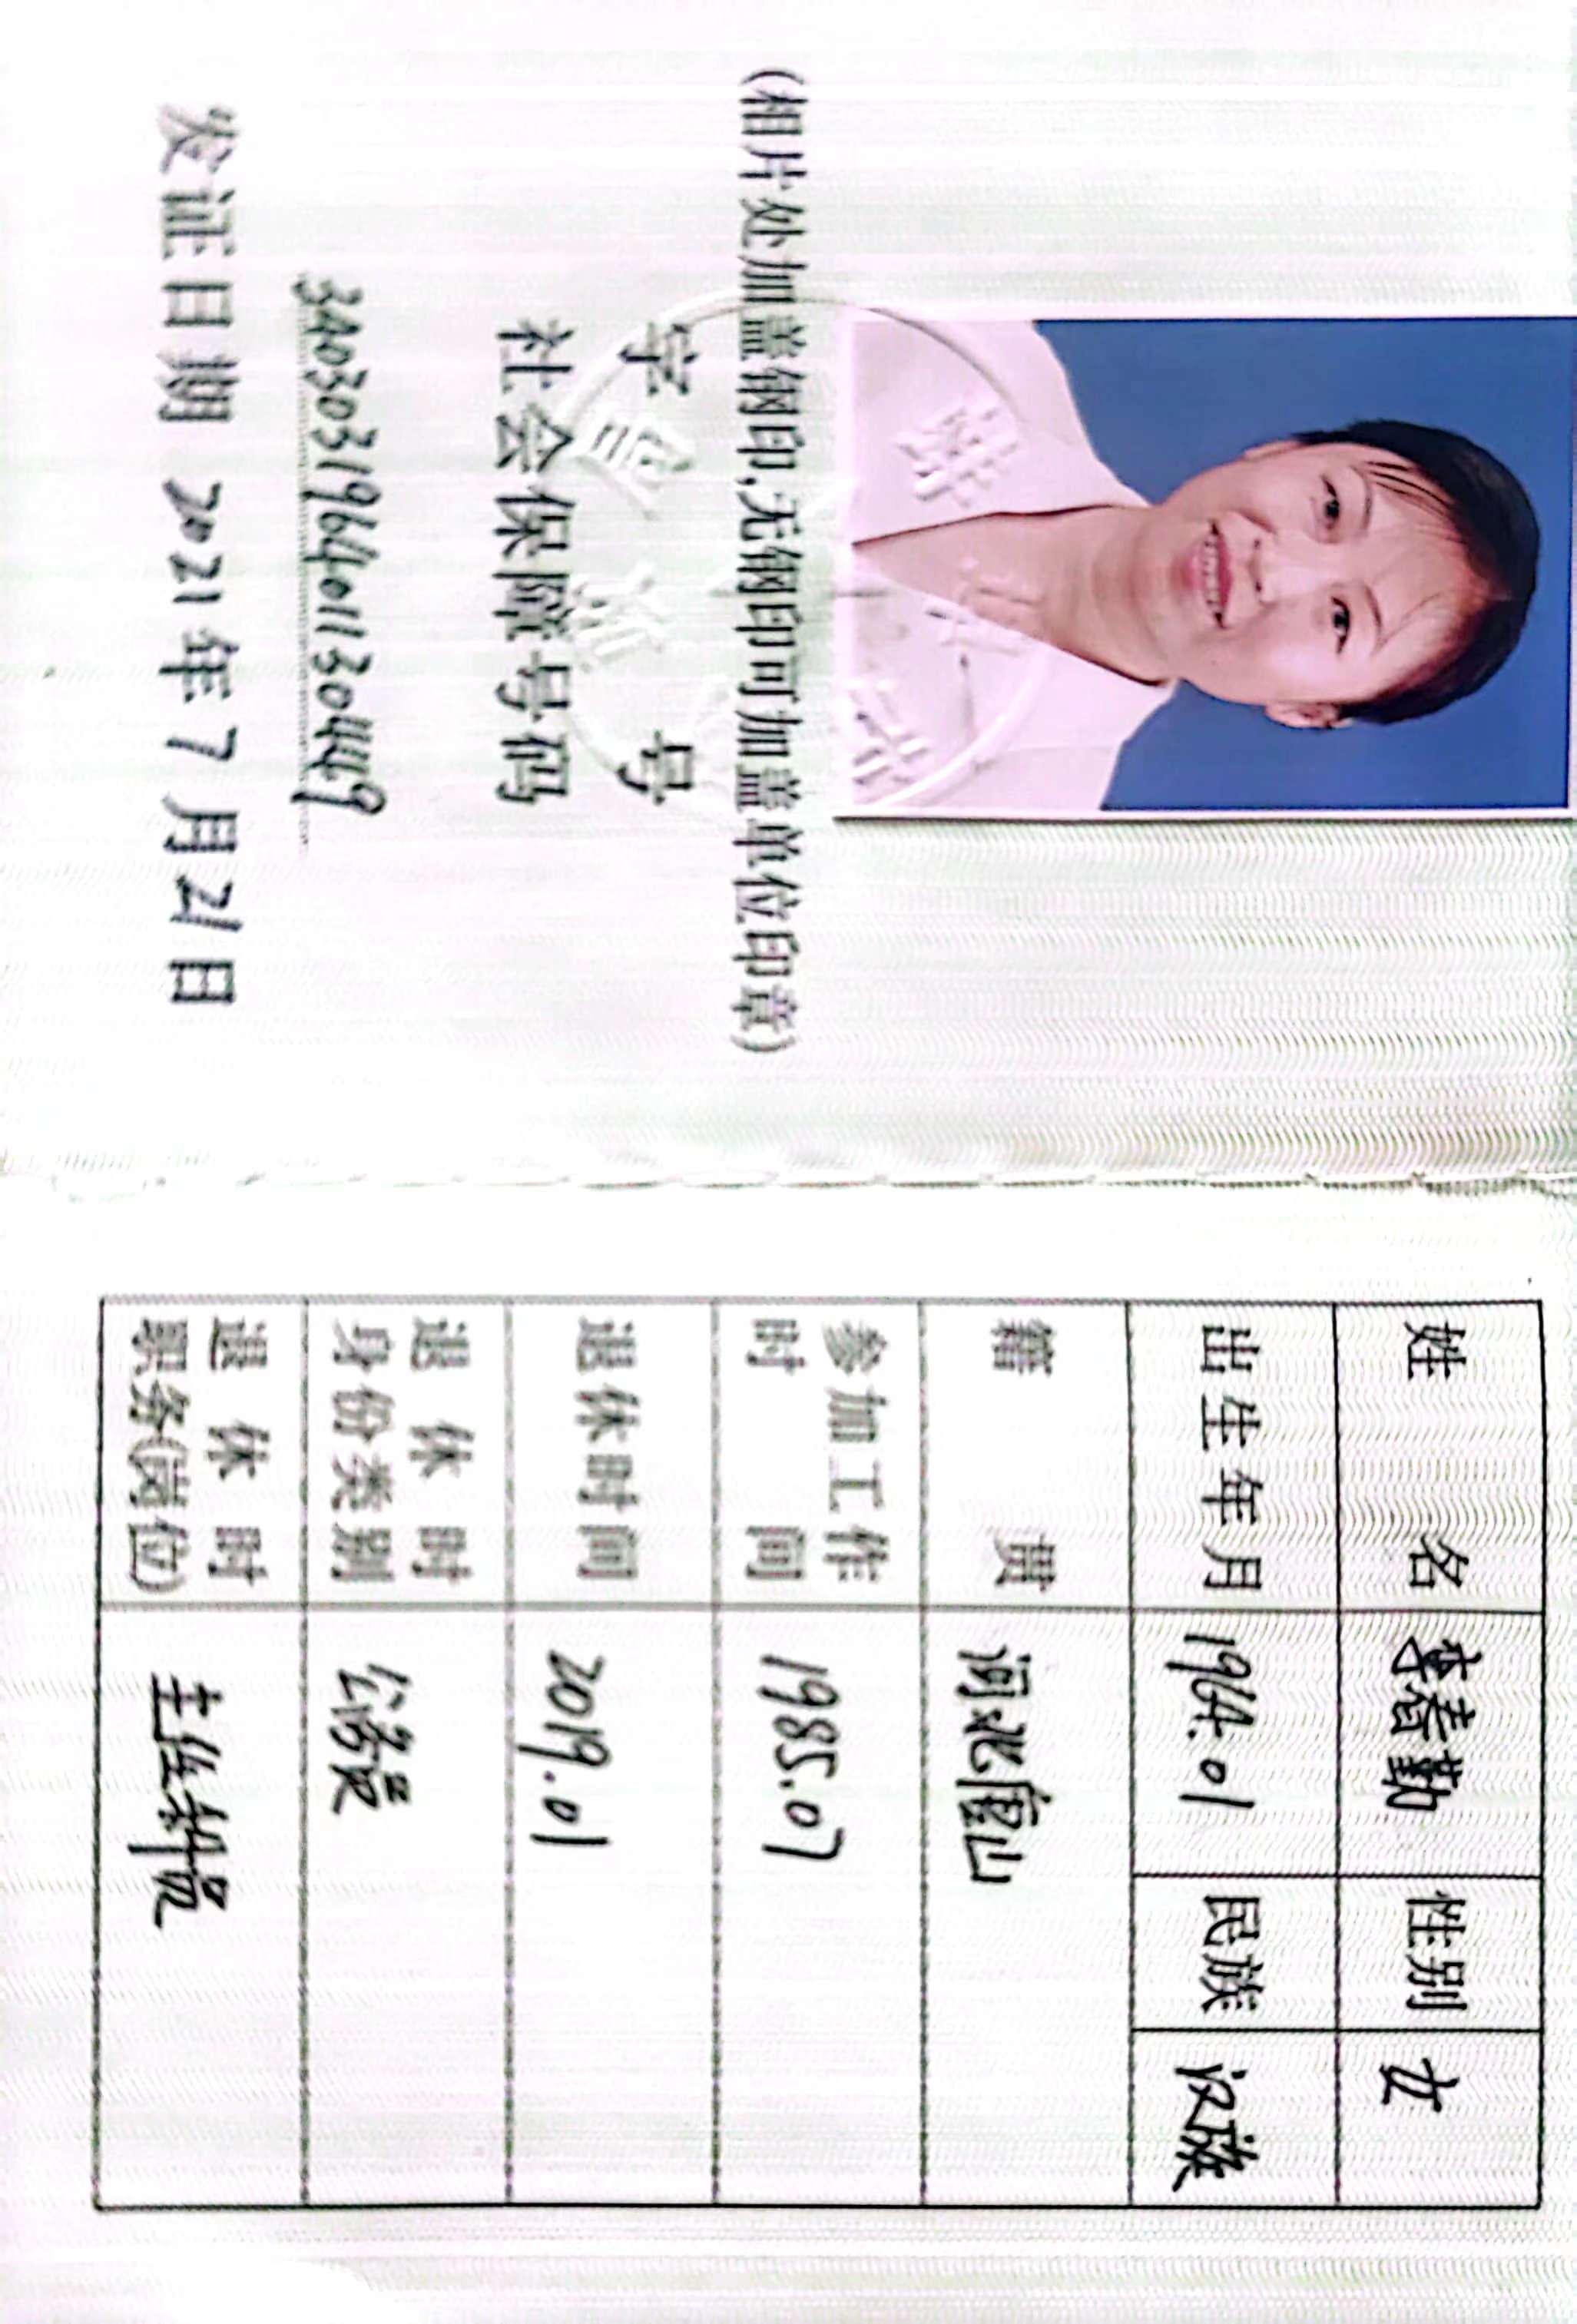 (相片处加盖钢印,无钢印可加盖单位印章)
字 号
社会保障号码
340303196401130449
发证日期 2021年7月21日
姓 名 李春勤 性别 女
出生年月 1964.01 民族 汉族
籍 贯 河北唐山
参加工作
时 间 1985.07
退休时间 2019.01
退休时
身份类别 公务员
退休时
职务(岗位) 主任科员